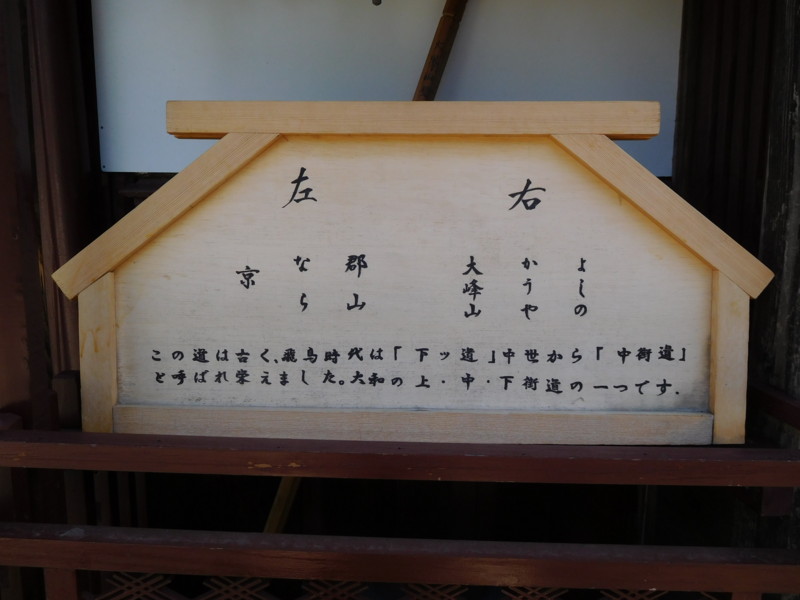 右
よしの
かうや
大峰山
左
郡山
なら
京
この道は古く、飛鳥時代は「下ッ道」中世から「中街道」
と呼ばれ栄えました。大和の上・中・下街道の一つです.